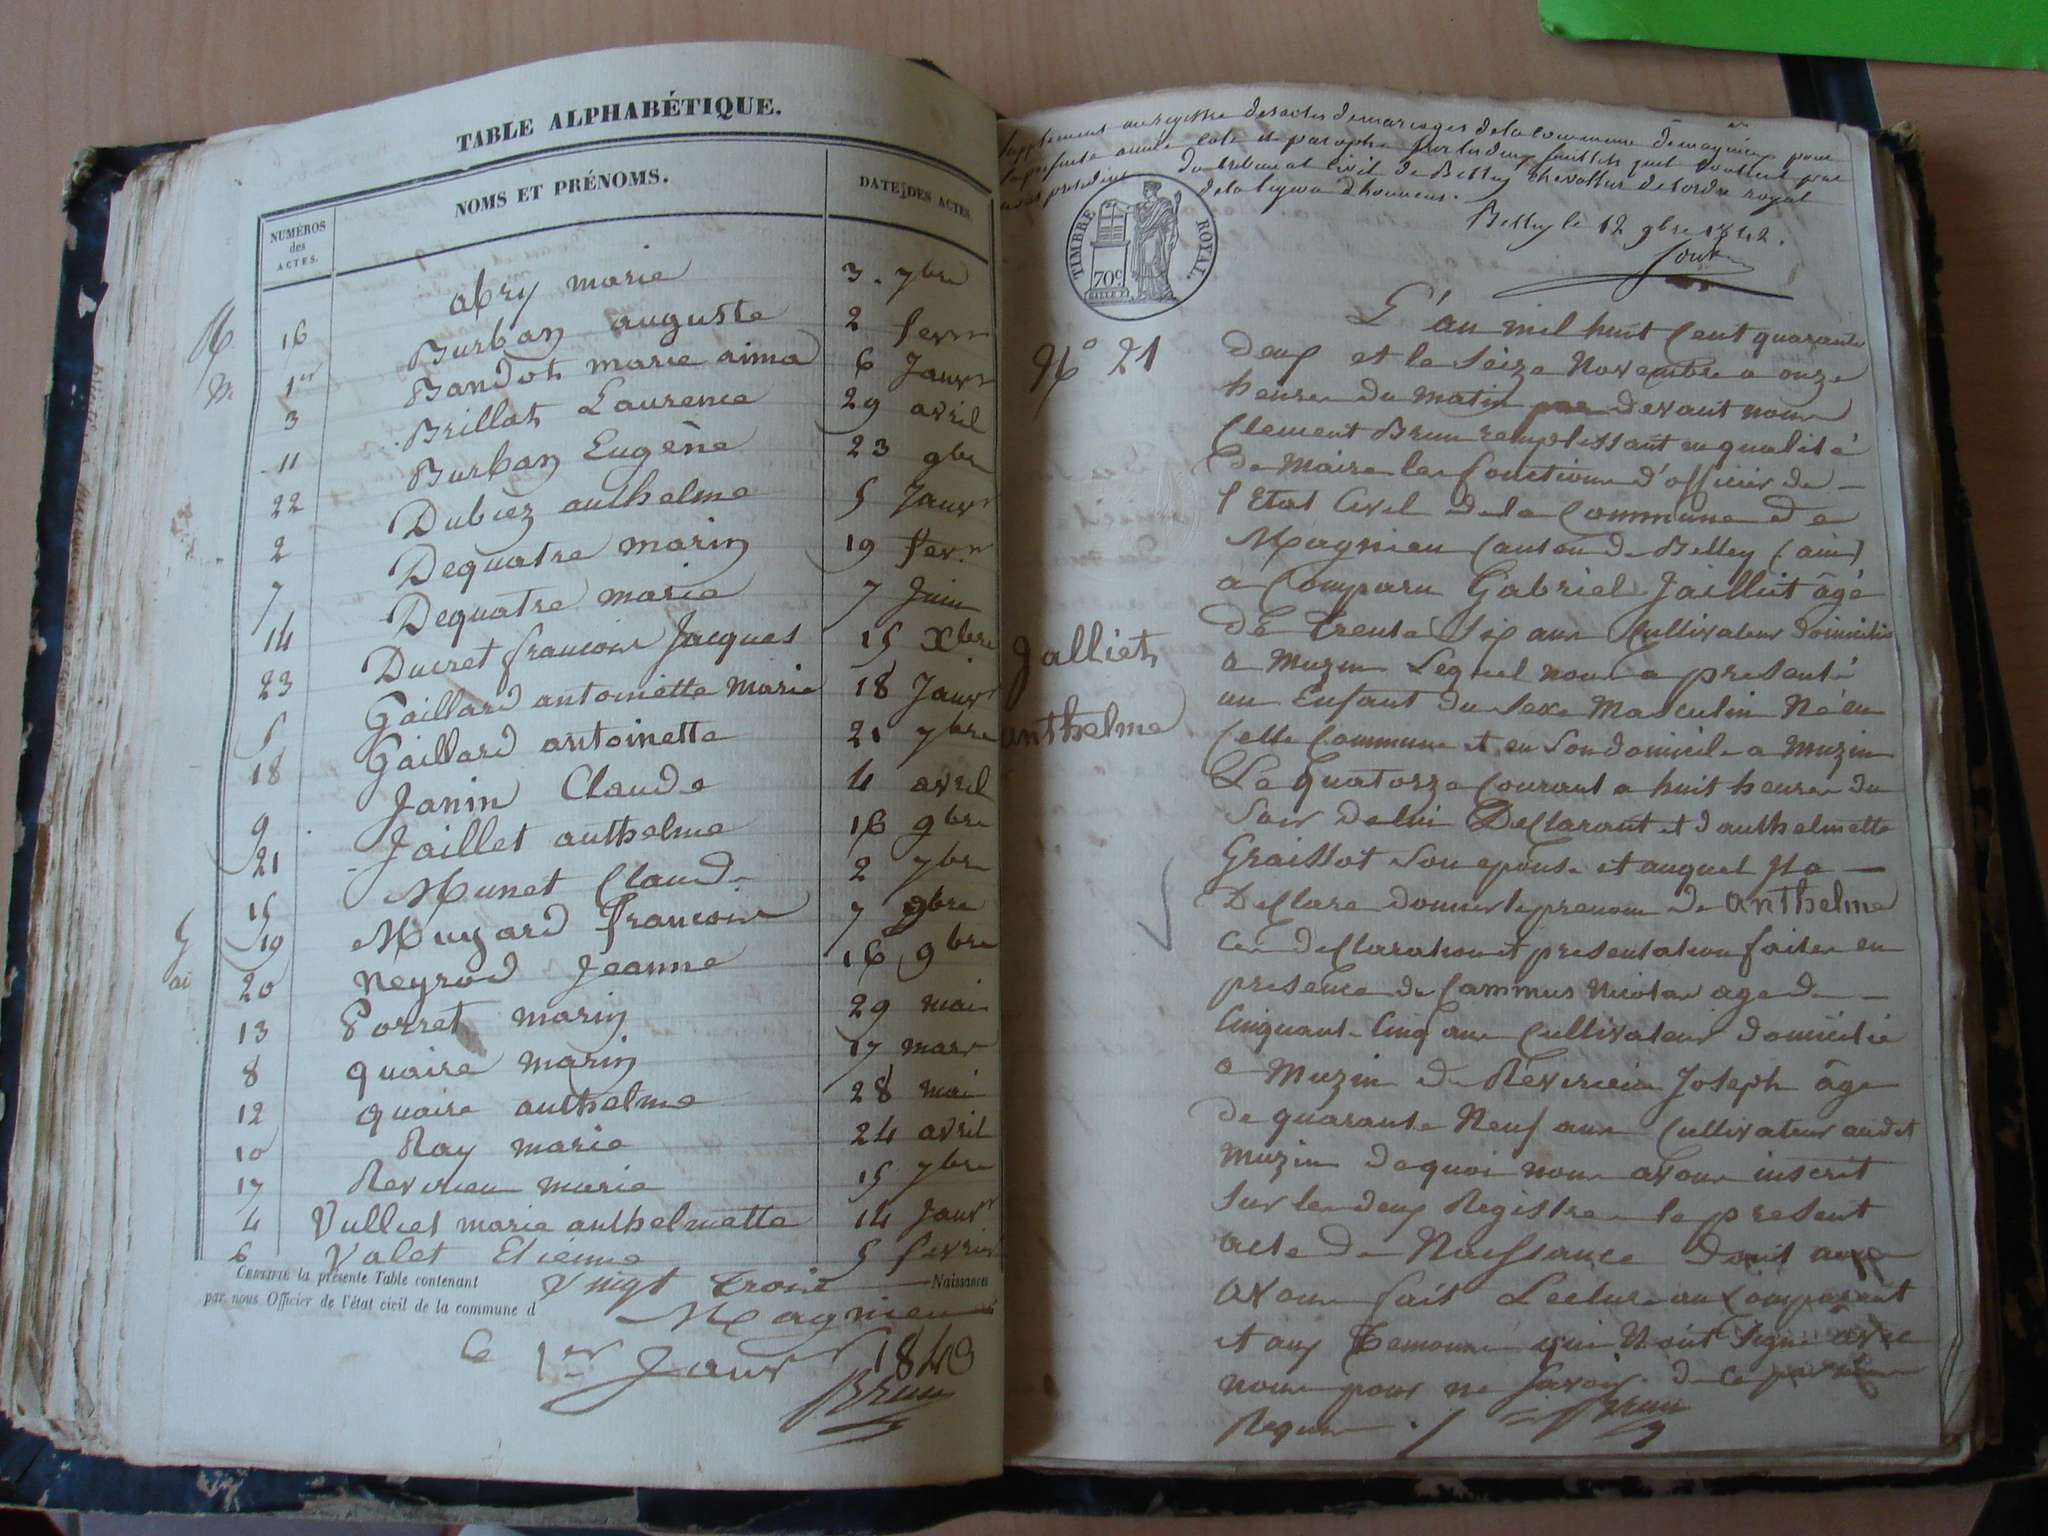 TABLE ALPHABÉTIQUE.
NUMÉROS des ACTES. NOMS ET PRÉNOMS. DATES DES ACTES.
16 abry marie 3. 7bre
1er Burban auguste 2 fevr
3 Bandot marie aima 6 Janvr
11 Brillat Laurence 29 avril
22 Burban Eugène 23 9bre
2 Dubiez anthelme 5 Janvr
7 Dequatre marin 19 fevr
14 Dequatre marie 7 Juin
23 Ducret francois Jacques 15 Xbre
5 Gaillard antoinette Marie 18 Janvr
18 Gaillard antoinette 21 7bre
9 Janin Claude 4 avril
21 Jaillet anthelme 16 9bre
15 Munet Claude 2 7bre
19 Mugard francois 7 9bre
20 Neyrod Jeanne 16 9bre
13 Porret marin 29 mai
8 quaire marin 17 mars
12 quaire anthelme 28 mai
10 Ray marie 24 avril
17 Revirieu marie 15 7bre
4 Vulliet marie anthelmette 14 Janvr
6 Valet Etienne 5 fevrier
CERTIFIÉ la présente Table contenant Vingt trois Naissances
par nous Officier de l'état civil de la commune d Magnieu
le 1er Janvr 1843
Brun
Supplement au registre des actes de mariages de la commune de magnieu pour
la presente année coté et paraphé par
du tribunal civil de Belley chevallier de l'ordre royal
de la legion d'honneur.
Belley le 12 9bre 1842.
TIMBRE ROYAL.
70c
N° 21
Jalliet
anthelme
L'an mil huit Cent quarante
deux et le Seize Novembre a onze
heures du matin par devant nous
Clement Brun remplissant en qualité
de Maire les fonctions d'officier de
l'Etat Civil de la Commune de
Magnieu Canton de Belley (ain)
a Comparu Gabriel Jailliet âgé
de trente Six ans Cultivateur domicilié
a Muzin Lequel nous a presenté
un Enfant du Sexe Masculin Né en
Cette Commune et en Son domicile a Muzin
Le quatorze Courant a huit heures du
Soir de lui Declarant et d'anthelmette
Graissot Son epouse et auquel Il a
Declaré donner le prenom de anthelme
Ces declaration et presentation faites en
presence de Cammus Nicolas age de
Cinquante Cinq ans Cultivateur domicilié
a Muzin de Revirieu Joseph âge
de quarante Neuf ans Cultivateur audit
Muzin de quoi nous avons inscrit
Sur les deux Registres le present
acte de Naissance dont nous
avons fait Lecture au Comparant
et aux temoins qui N'ont Signé avec
nous pour ne Savoir de ce par nous
Requis.
Brun